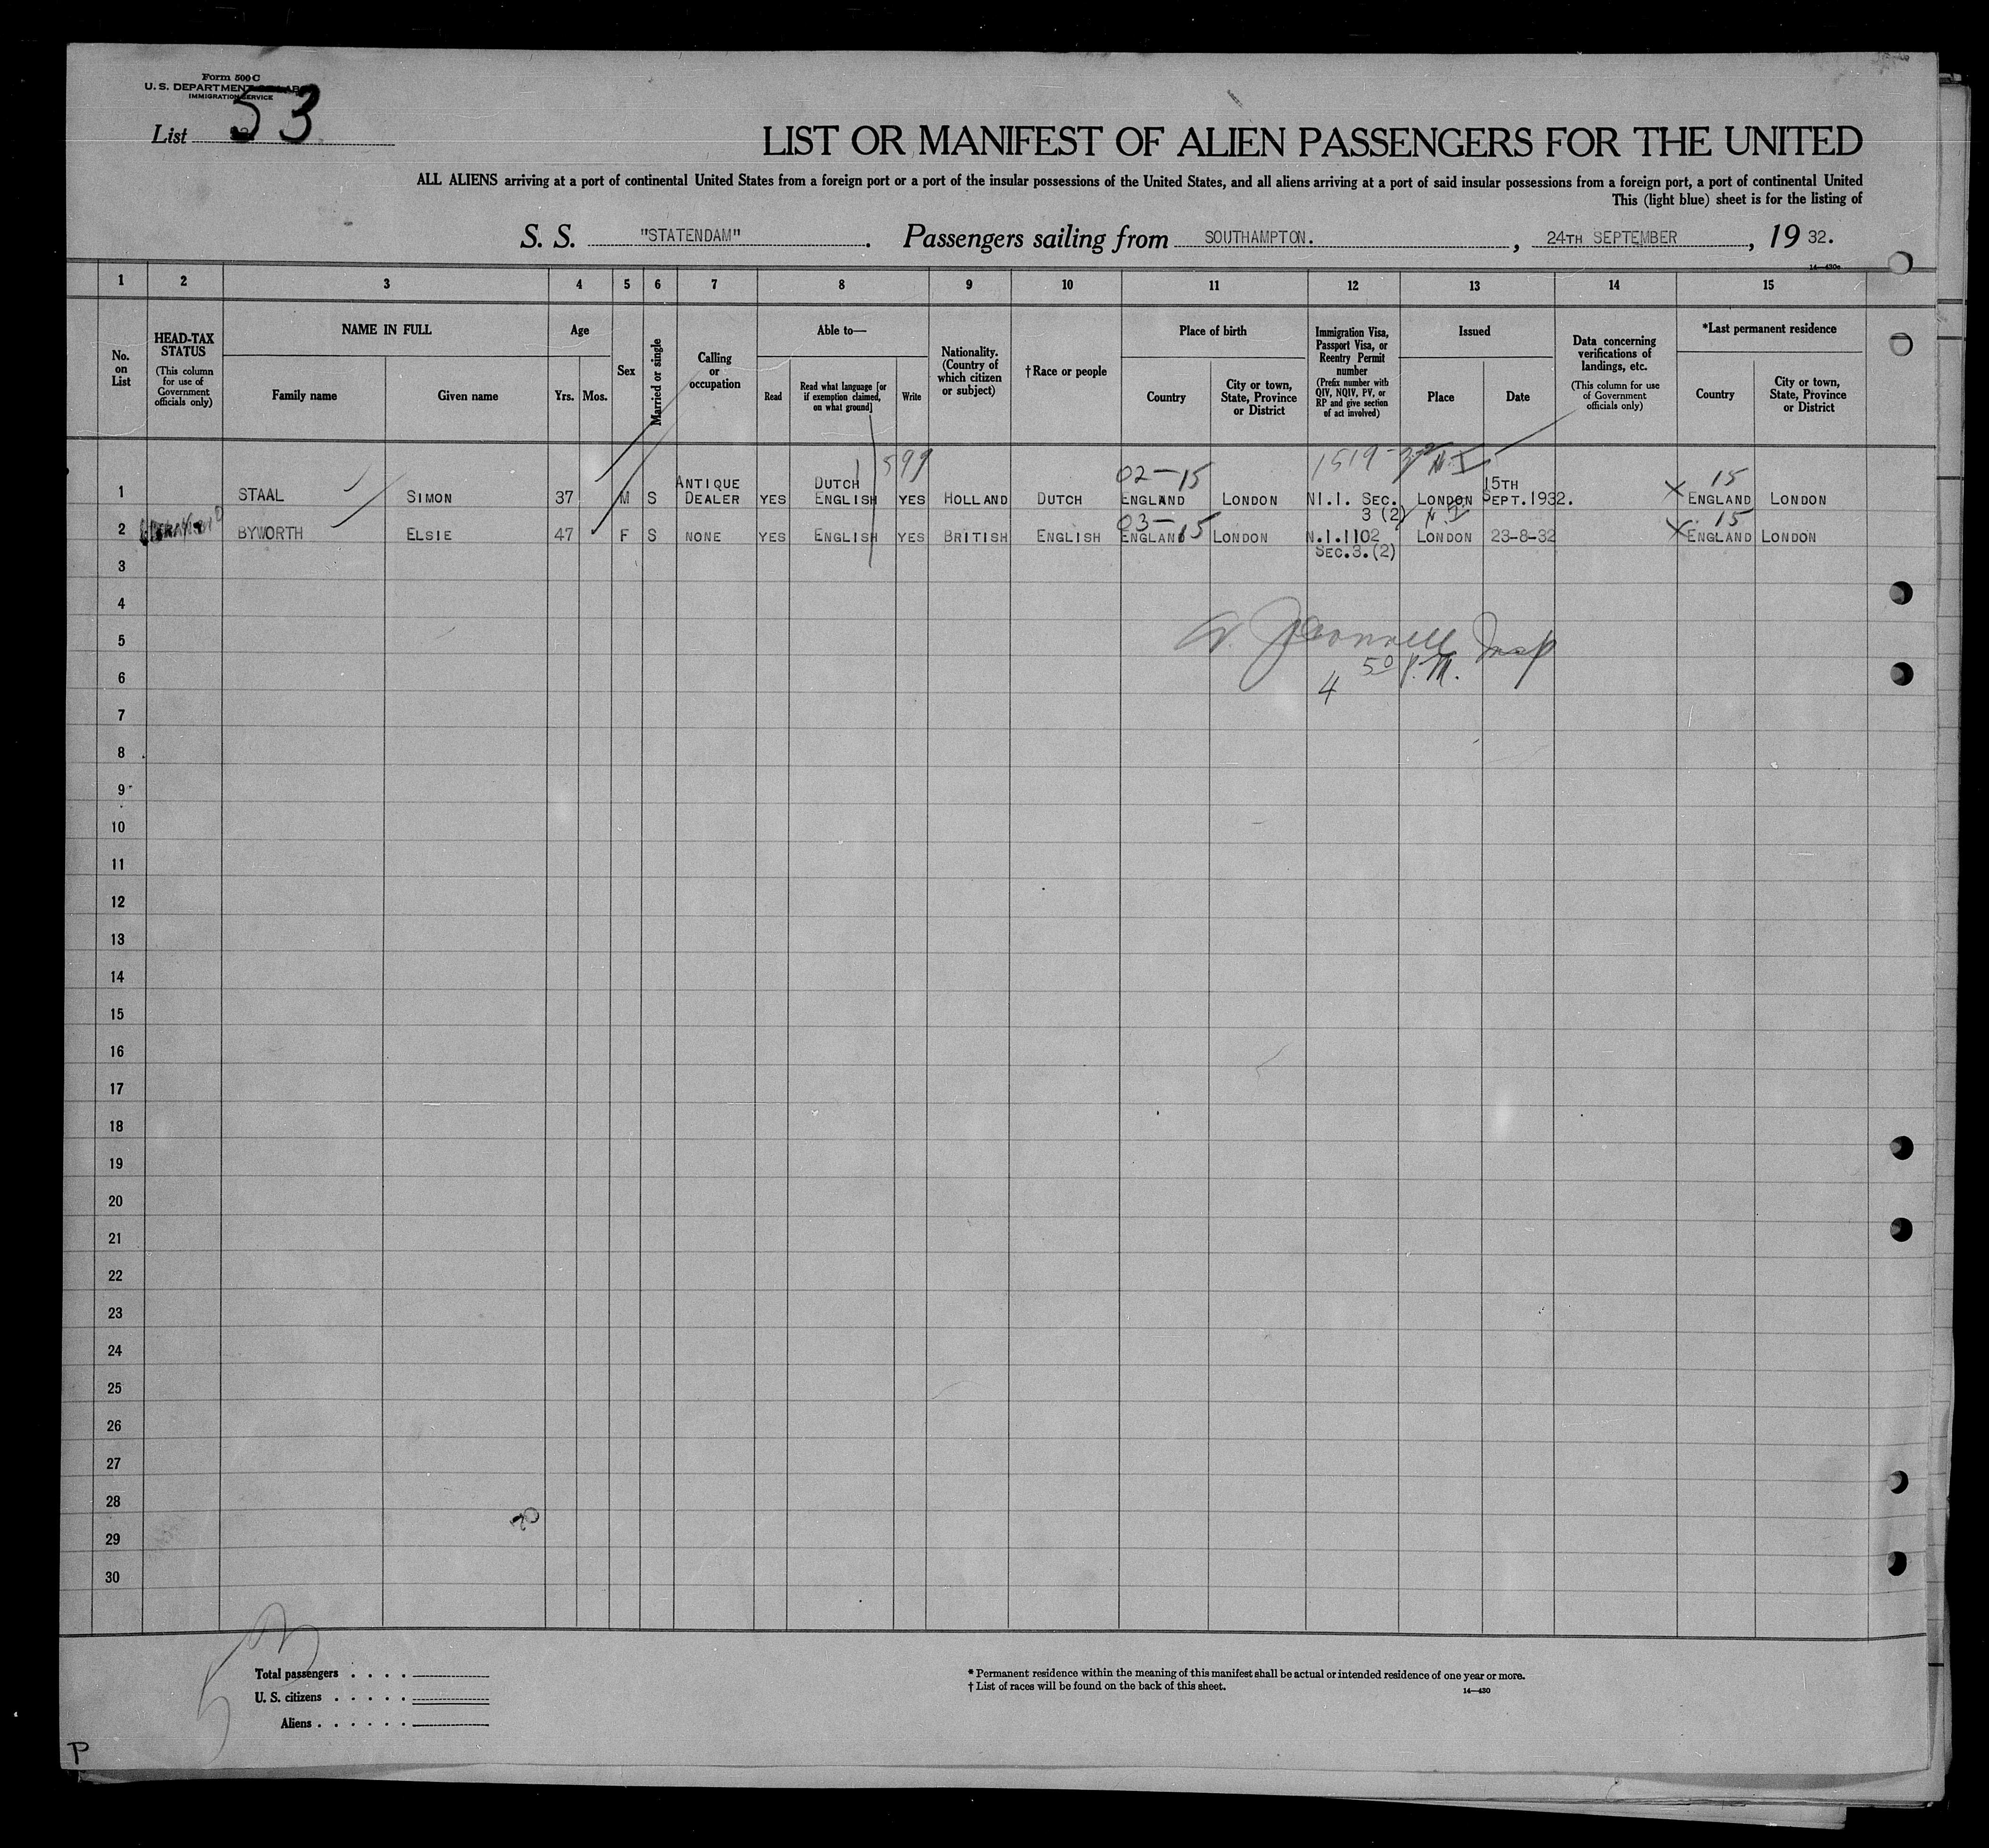 Form 500 C
U. S. DEPARTMENT
IMMIGRATION SERVICE
List 53
LIST OR MANIFEST OF ALIEN PASSENGERS FOR THE UNITED
ALL ALIENS arriving at a port of continental United States from a foreign port or a port of the insular possessions of the United States, and all aliens arriving at a port of said insular possessions from a foreign port, a port of continental United
This (light blue) sheet is for the listing of
S. S. "STATENDAM". Passengers sailing from SOUTHAMPTON., 24TH SEPTEMBER, 19 32.
1 2 3 4 5 6 7 8 9 10 11 12 13 14 15
No. on List
HEAD-TAX STATUS
(This column for use of Government officials only)
NAME IN FULL
Family name
Given name
Age
Yrs. Mos.
Sex
Married or single
Calling or occupation
Able to—
Read
Read what language [or if exemption claimed, on what ground]
Write
Nationality. (Country of which citizen or subject)
†Race or people
Place of birth
Country
City or town, State, Province or District
Immigration Visa, Passport Visa, or Reentry Permit number
(Prefix number with QIV, NQIV, PV, or RP and give section of act involved)
Issued
Place
Date
Data concerning verifications of landings, etc.
(This column for use of Government officials only)
*Last permanent residence
Country
City or town, State, Province or District
599
02-15
N.I.
15
1 STAAL SIMON 37 M S ANTIQUE DEALER YES DUTCH ENGLISH YES HOLLAND DUTCH ENGLAND LONDON N1.1. SEC. 3 (2) LONDON 15TH SEPT.1932. X ENGLAND LONDON
03-15
N.I.
15
2 BYWORTH ELSIE 47 F S NONE YES ENGLISH YES BRITISH ENGLISH ENGLAND LONDON N.1.1102 SEC.3.(2) LONDON 23-8-32 X ENGLAND LONDON
3
4
5
Insp
4 50 P.M.
6
7
8
9
10
11
12
13
14
15
16
17
18
19
20
21
22
23
24
25
26
27
28
29
30
53
Total passengers . . . .
U. S. citizens . . . . .
Aliens . . . . . .
* Permanent residence within the meaning of this manifest shall be actual or intended residence of one year or more.
† List of races will be found on the back of this sheet.
14—430
P